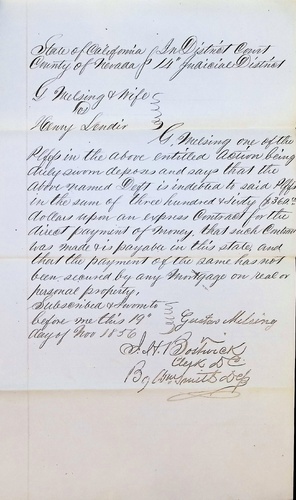 State of California } In District Court
County of Nevada } 14th Judicial District
G Melsing & Wife
vs
Henry Lendir
G. Melsing one of the
Plffs in the above entitled Action being
duly sworn deposes and says that the
above named Deft is indebted to said Plffs
in the sum of three hundred & sixty $360
dollars upon an express Contract for the
direct payment of money, that such Contract
was made & is payable in this state, and
that the payment of the same has not
been secured by any Mortgage on real or
personal property.
Subscribed & Sworn to
before me this 19th Gustav Melsing
day of Nov 1856
J. H. Bostwick
Clerk D C
By Wm Smith Dep